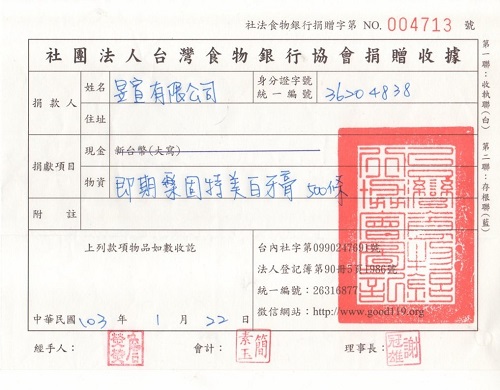 社法食物銀行捐贈字第 NO. 004713 號
社團法人台灣食物銀行協會捐贈收據
捐款人 姓名 昱宣有限公司 身分證字號 統一編號 36204838
住址
捐獻項目 現金 新台幣(大寫)
物資 即期藥固特美白牙膏 500條
附註
上列款項物品如數收訖
台內社字第0990247691號
法人登記簿第90冊5頁1986號
統一編號：26316877
徵信網站：http://www.good119.org
中華民國 103 年 1 月 22 日
經手人： 會計： 簡素玉 理事長： 謝冠雄
第一聯：收執聯(白) 第二聯：存根聯(藍)